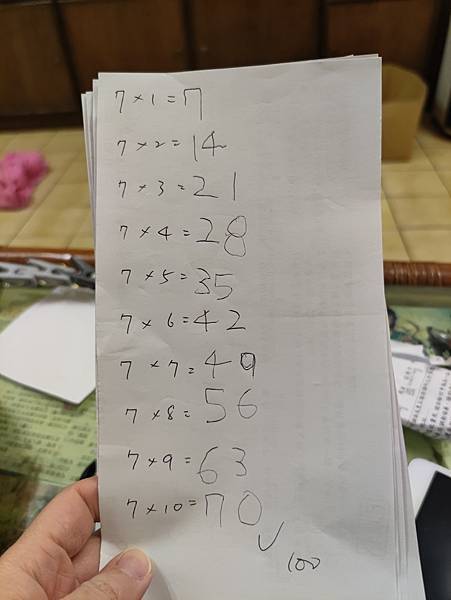 7 × 1 = 7
7 × 2 = 14
7 × 3 = 21
7 × 4 = 28
7 × 5 = 35
7 × 6 = 42
7 × 7 = 49
7 × 8 = 56
7 × 9 = 63
7 × 10 = 70
✓
100